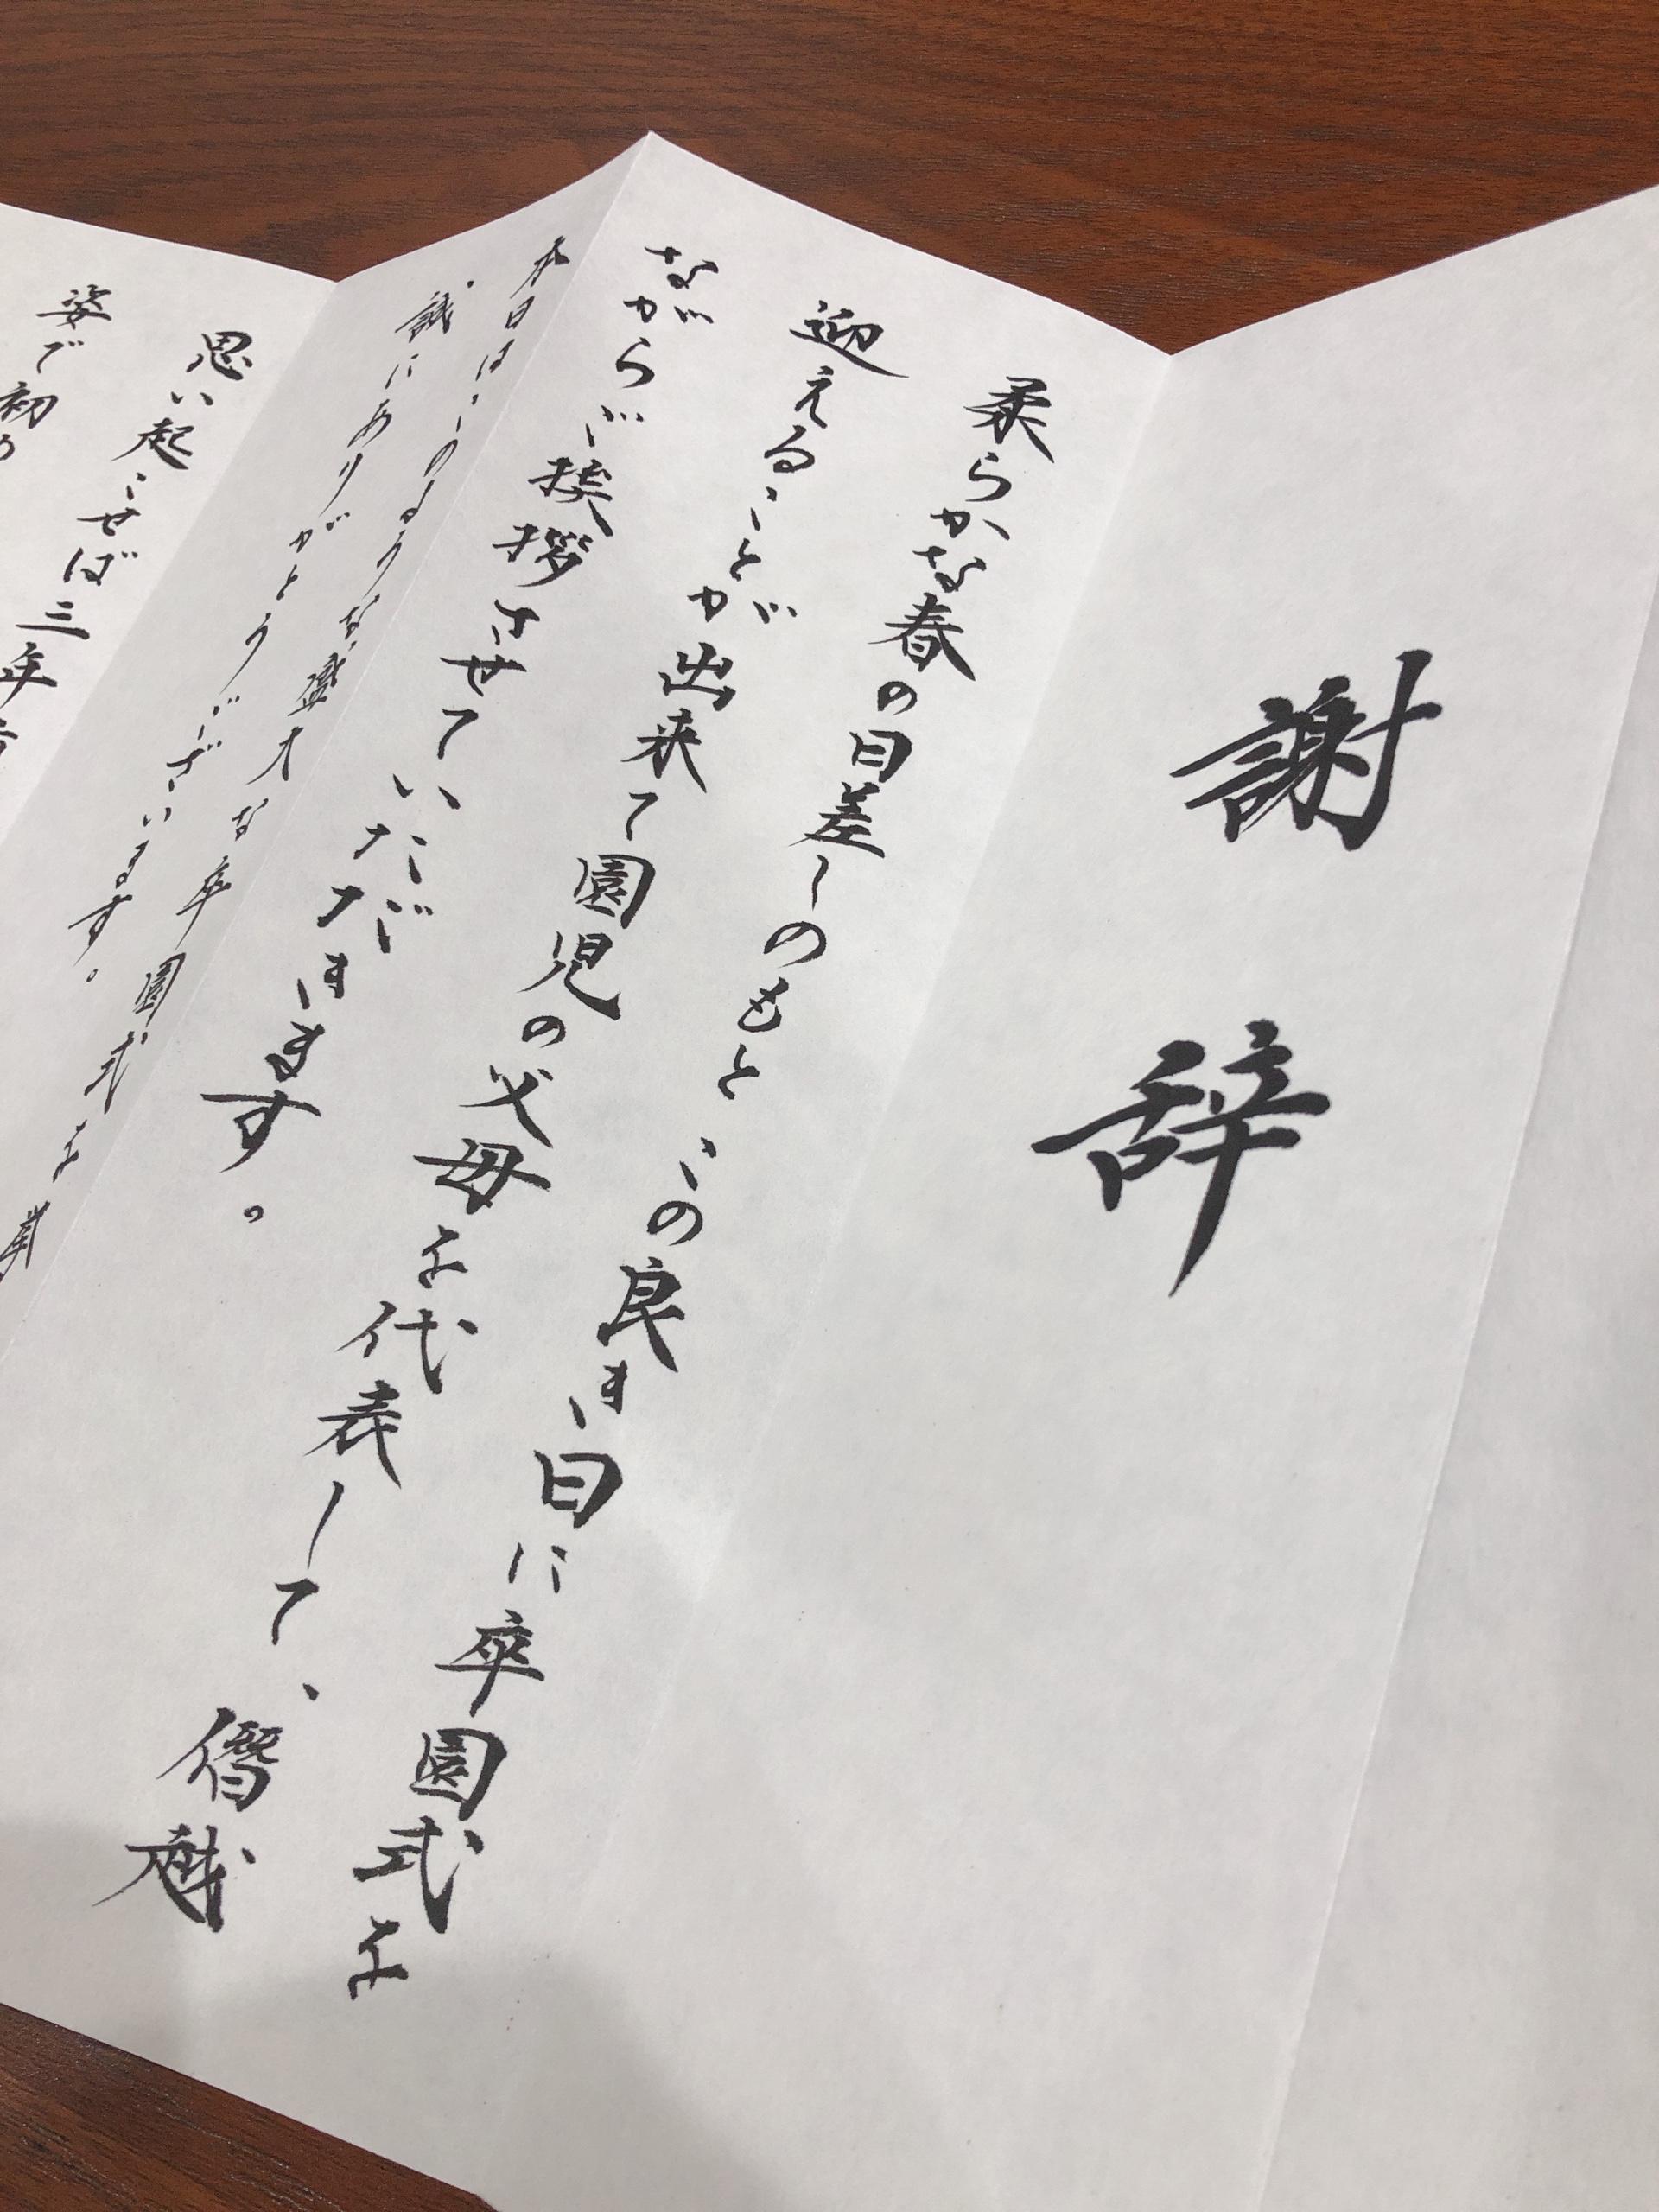 謝辞
柔らかな春の日差しのもとこの良き日に卒園式を
迎えることが出来て園児の父母を代表して、僭越
ながらご挨拶させていただきます。
本日はこのような盛大な卒園式を挙
誠にありがとうございます。
思い起こせば三年
姿で初め